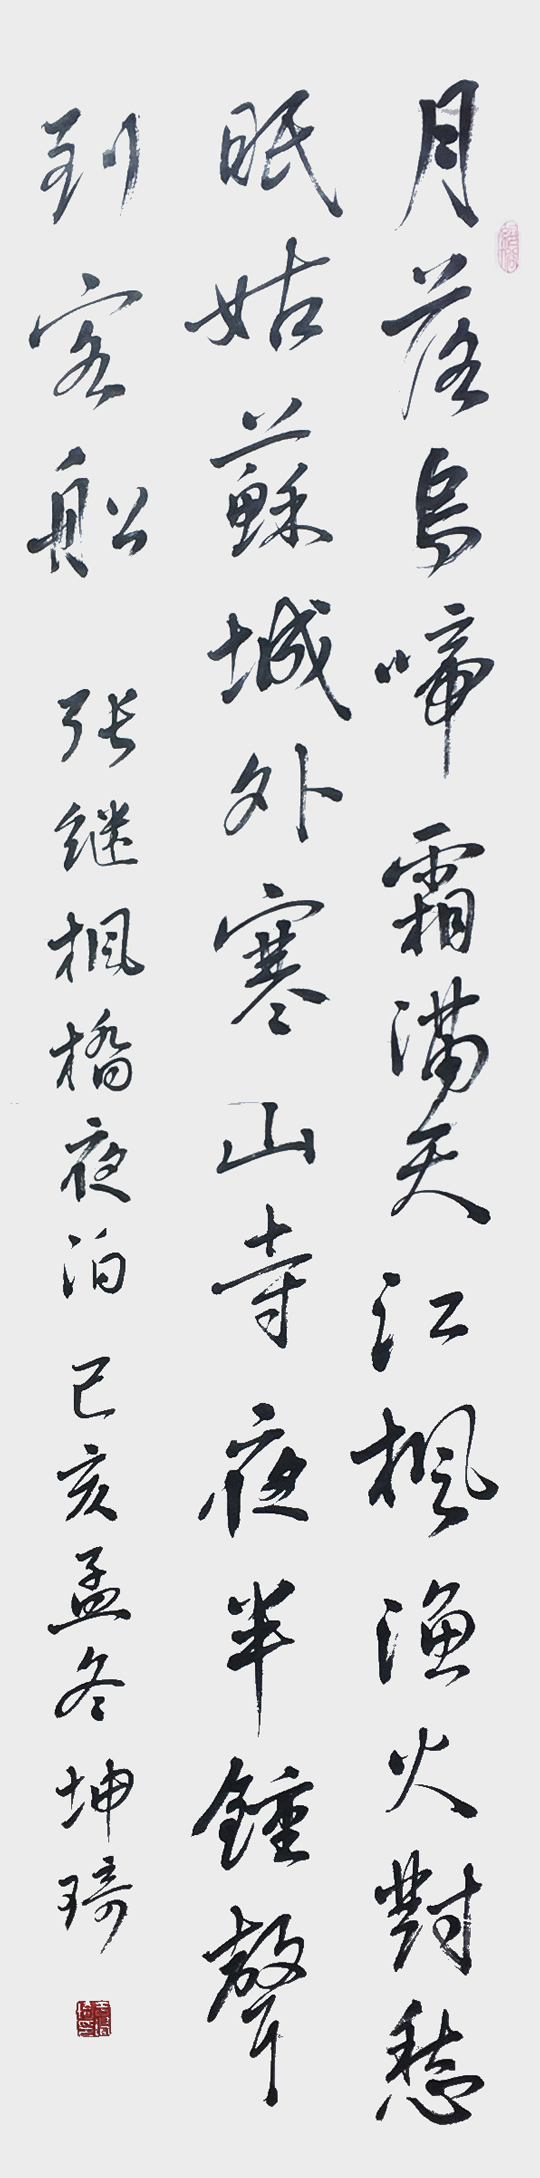 月落烏啼霜滿天江楓渔火對愁
眠姑蘇城外寒山寺夜半鍾聲
到客船 张继枫橋夜泊 已亥孟冬 坤琦